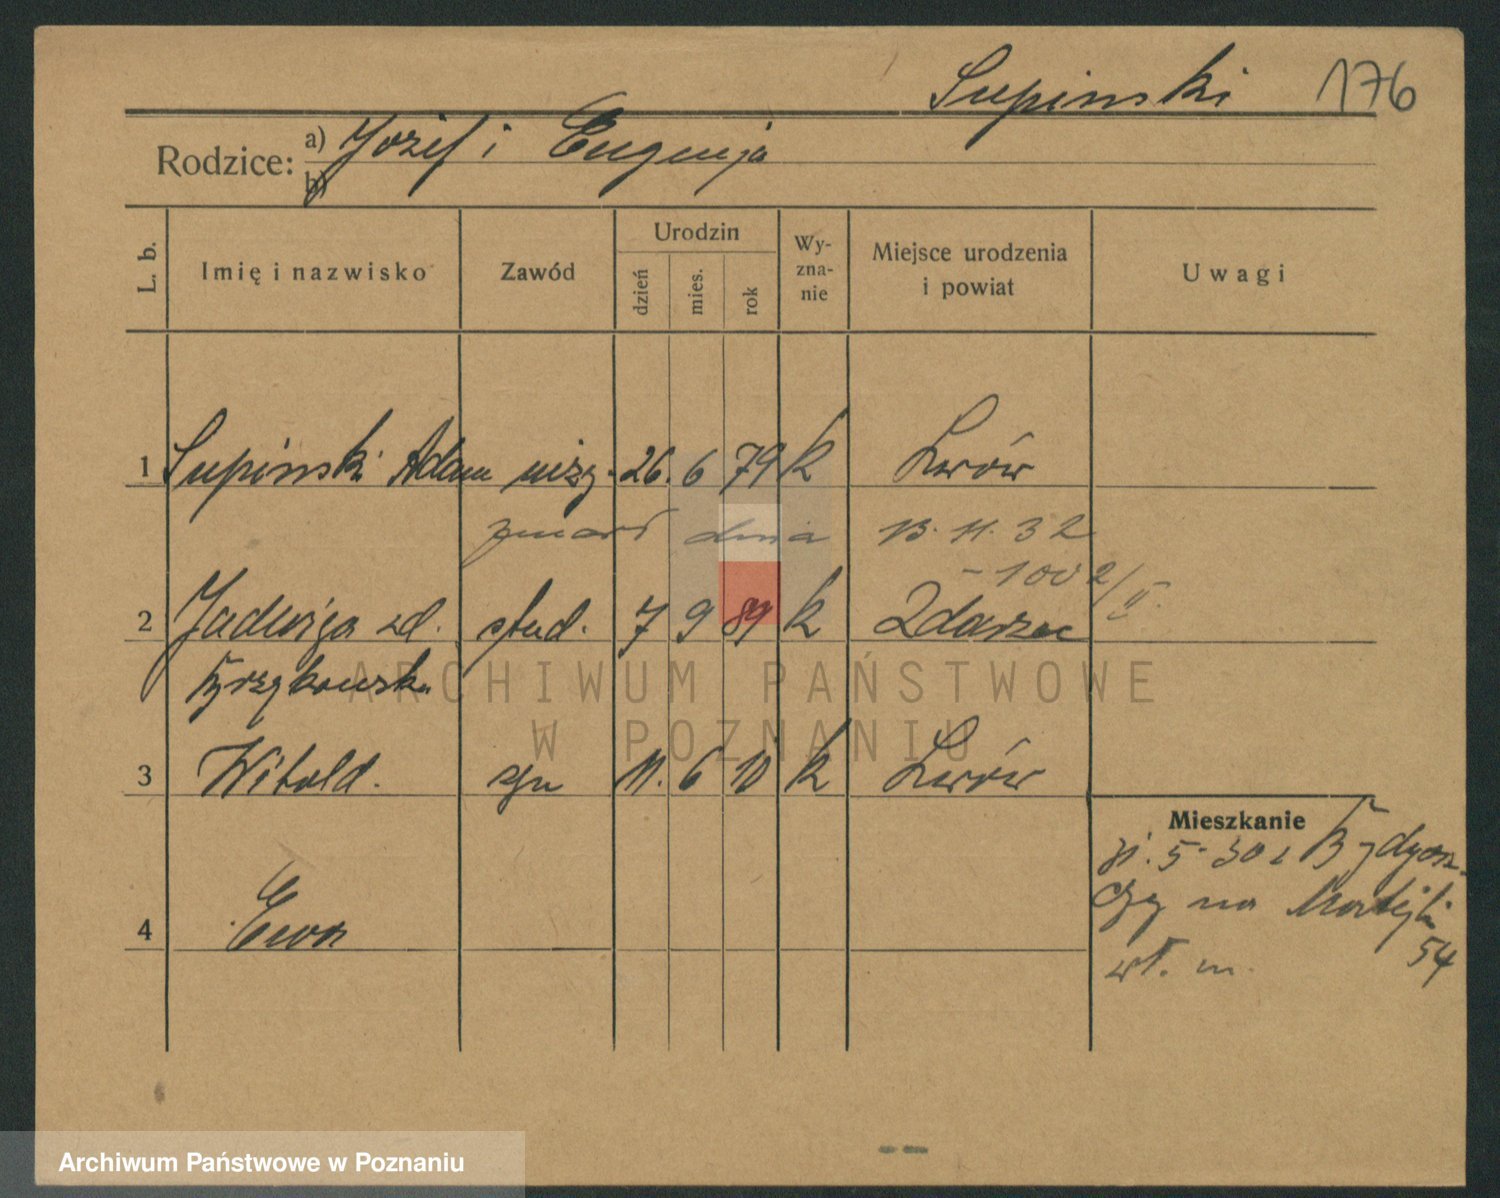 Supinski 176
Rodzice: a) Józef i Eugenja
b)
L. b. Imię i nazwisko Zawód Urodzin dzień mies. rok Wy-zna-nie Miejsce urodzenia i powiat Uwagi
1 Supinski Adam inży. 26. 6 79 k Lwów
zmarł dnia 13. 11. 32
- 1002/II.
2 Jadwiga zd. stud. 7 9 89 k
3 Witold. syn 11. 6 10 k Lwów
4 Ewa
Mieszkanie
5. 30 z Bydgosz-
czy na Matejki
54
wł. m.
ARCHIWUM PAŃSTWOWE
W POZNANIU
Archiwum Państwowe w Poznaniu